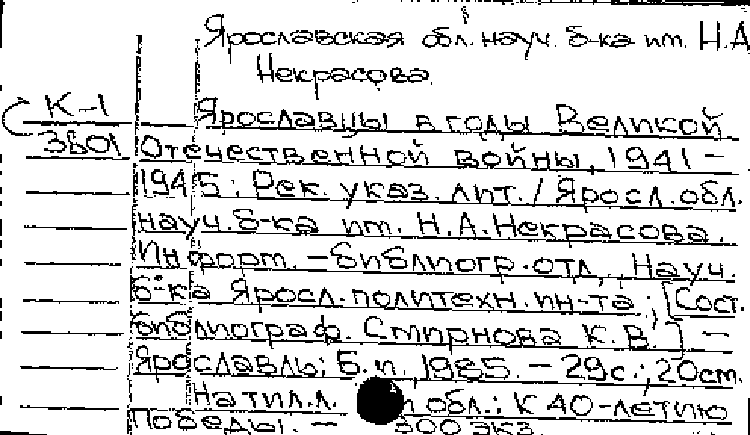 Ярославская обл. науч. б-ка им. Н.А.
Некрасова.
К-1
Ярославцы в годы Великой
3601 Отечественной войны, 1941 –
1945: Рек. указ. лит. / Яросл. обл.
науч. б-ка им. Н.А. Некрасова.
Информ. – библиогр. отд., Науч.
б-ка Яросл. политехн. ин-та; [Сост.
библиограф. Смирнова К.В.] –
Ярославль: Б.и., 1985. – 29с.; 20см.
На тил.л. обл.: К 40-летию
Победы. – 300 экз.